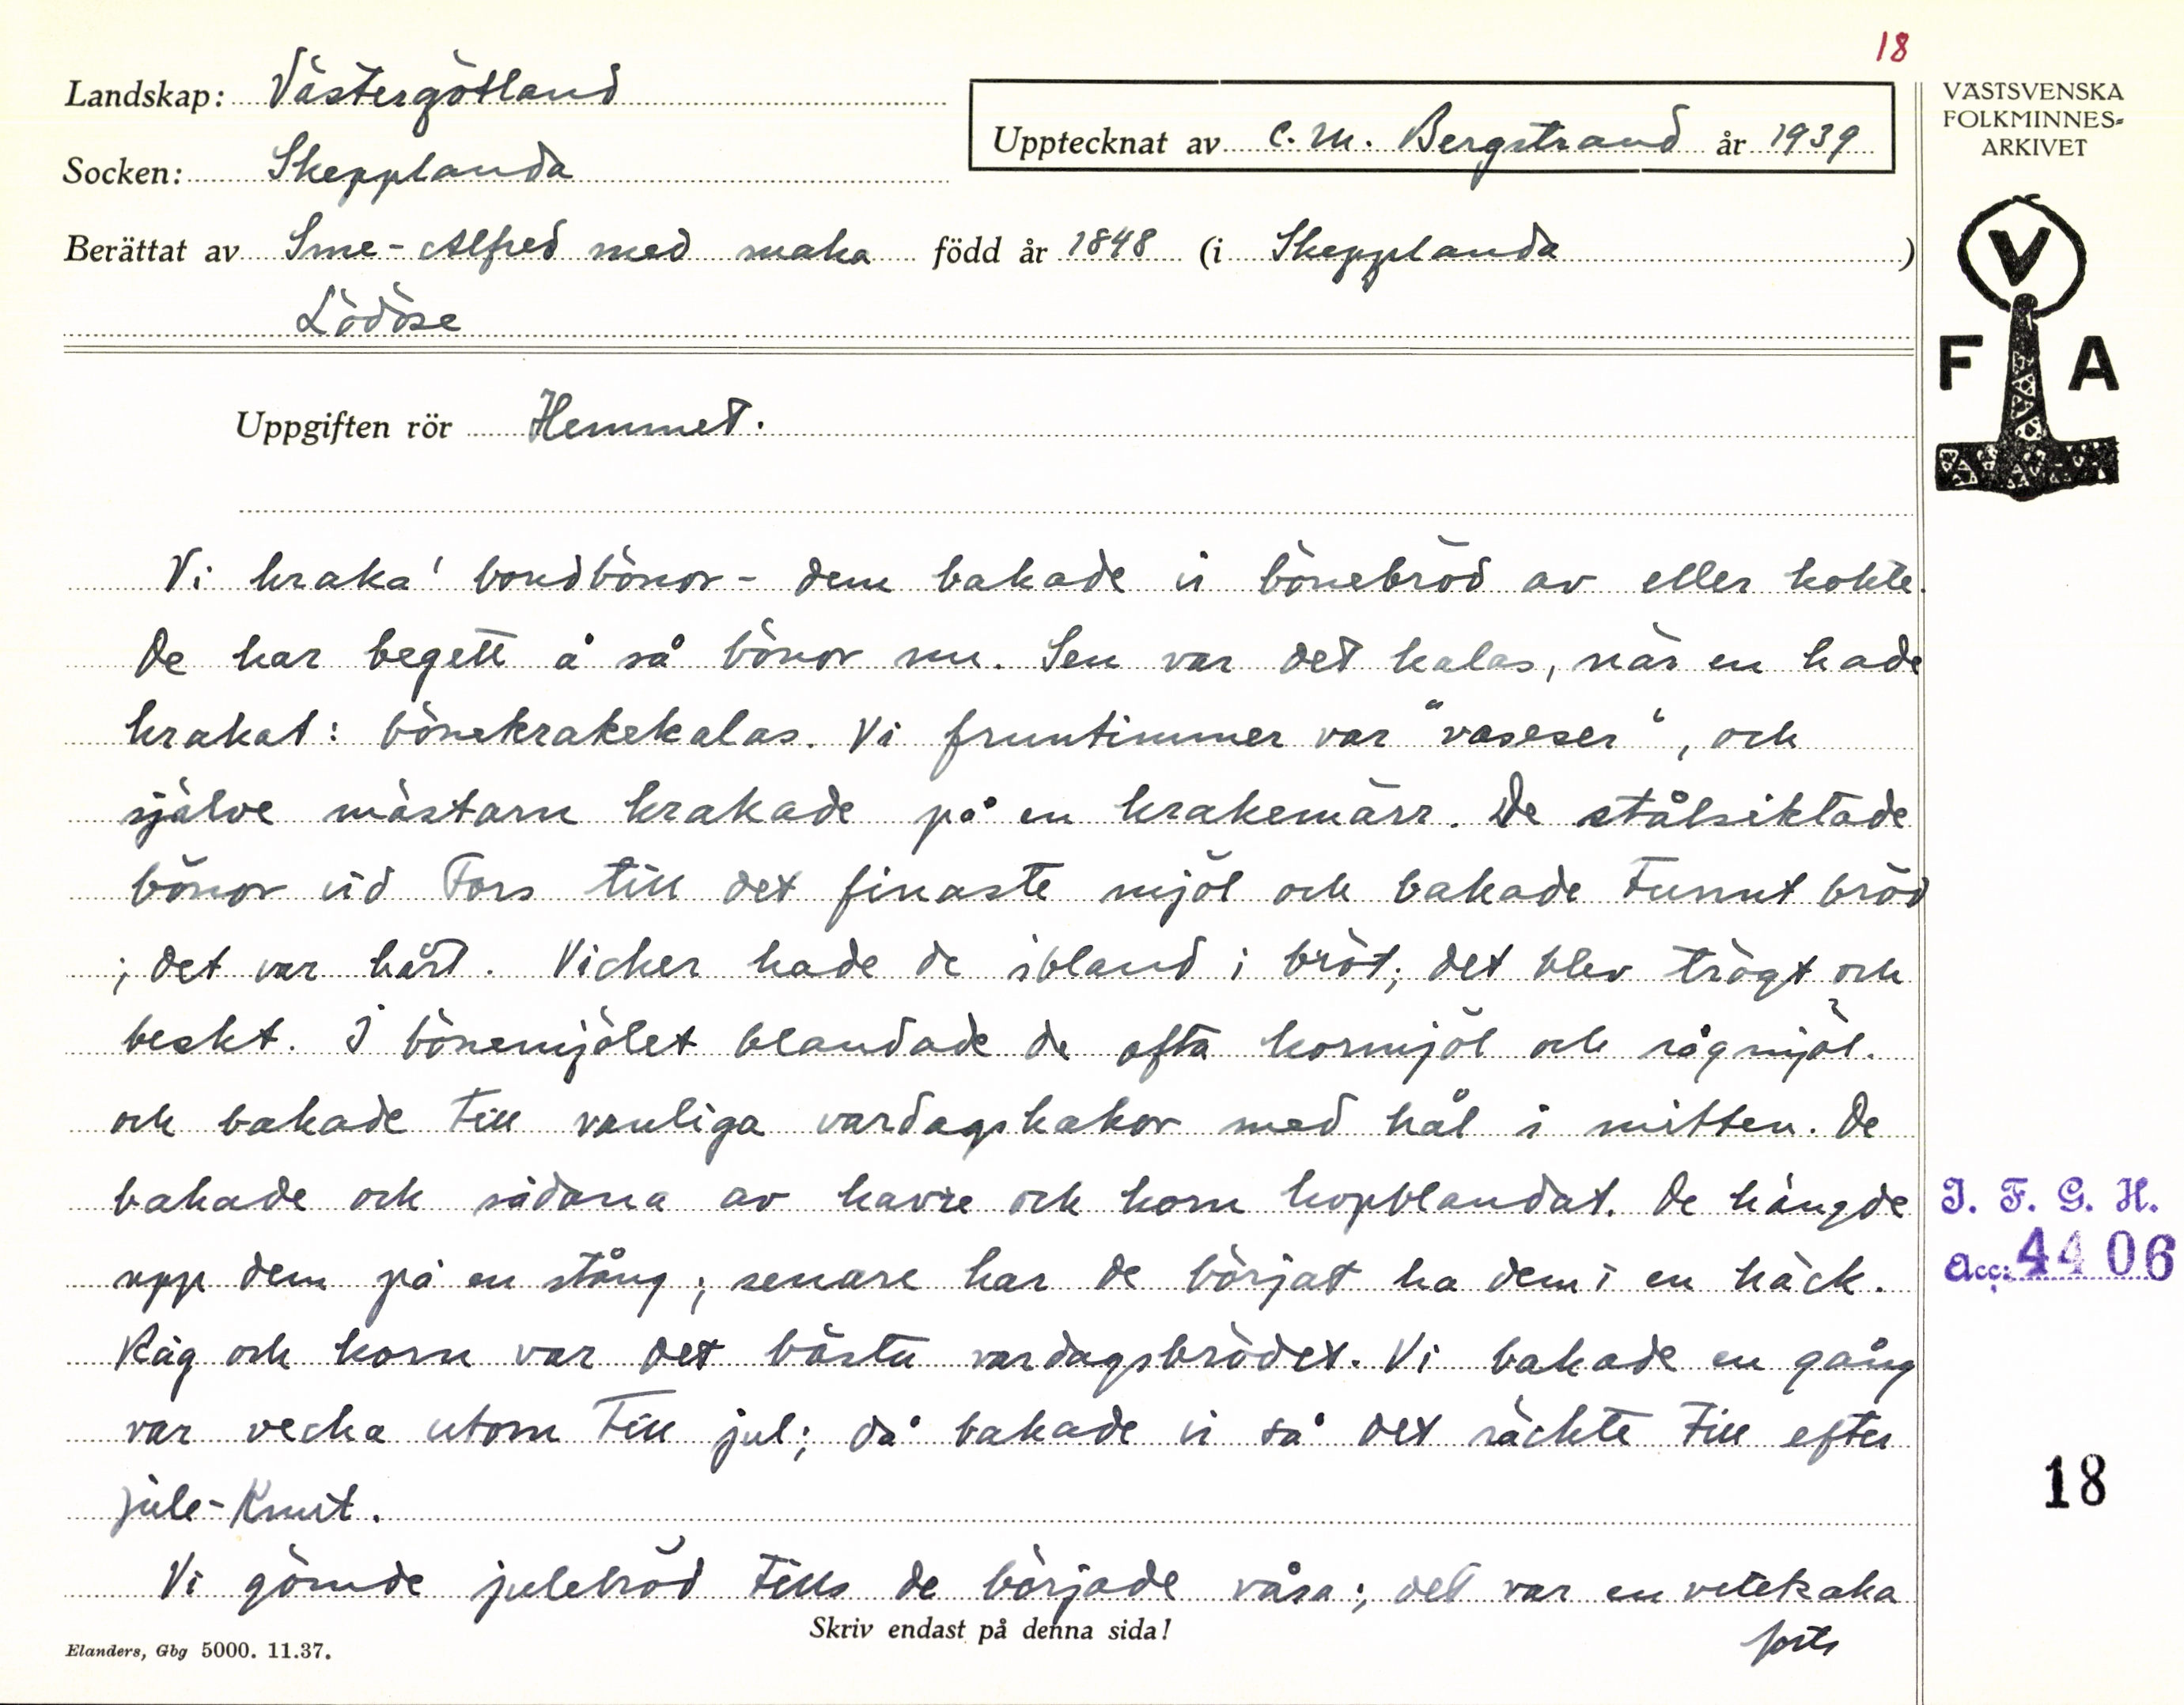 18
Landskap: Västergötland
Socken: Skepplanda
Upptecknat av C. M. Bergstrand år 1939
VÄSTSVENSKA
FOLKMINNES-
ARKIVET
Berättat av Sme-Alfred med maka född år 1848 (i Skepplanda)
Lödöse
V
F A
Uppgiften rör Hemmet.
Vi kraka' bondbönor - dem bakade vi bönebröd av eller kokte.
De har begett å så bönor nu. Sen var det kalas, när en hade
krakat: bönekrakekalas. Vi fruntimmer var "vaseser", och
själve mästarn krakade på en krakemärr. De stålsiktade
bönor vid Fors till det finaste mjöl och bakade tunnt bröd
; det var hårt. Vicker hade de ibland i bröt; det blev trögt och
beskt. I bönemjölet blandade de ofta kornmjöl och rågmjöl.
och bakade till vanliga vardagskakor med hål i mitten. De
bakade och sådana av havre och korn hopblandat. De hängde
upp dem på en stång; senare har de börjat ha dem i en häck.
Råg och korn var det bästa vardagsbrödet. Vi bakade en gång
var vecka utom till jul; då bakade vi så det räckte till efter
jule-Knut.
Vi gömde julebröd tills de började våra; det var en vetekaka
Skriv endast på denna sida!
forts
Elanders, Gbg 5000. 11.37.
I. F. G. H.
Acc: 4406
18